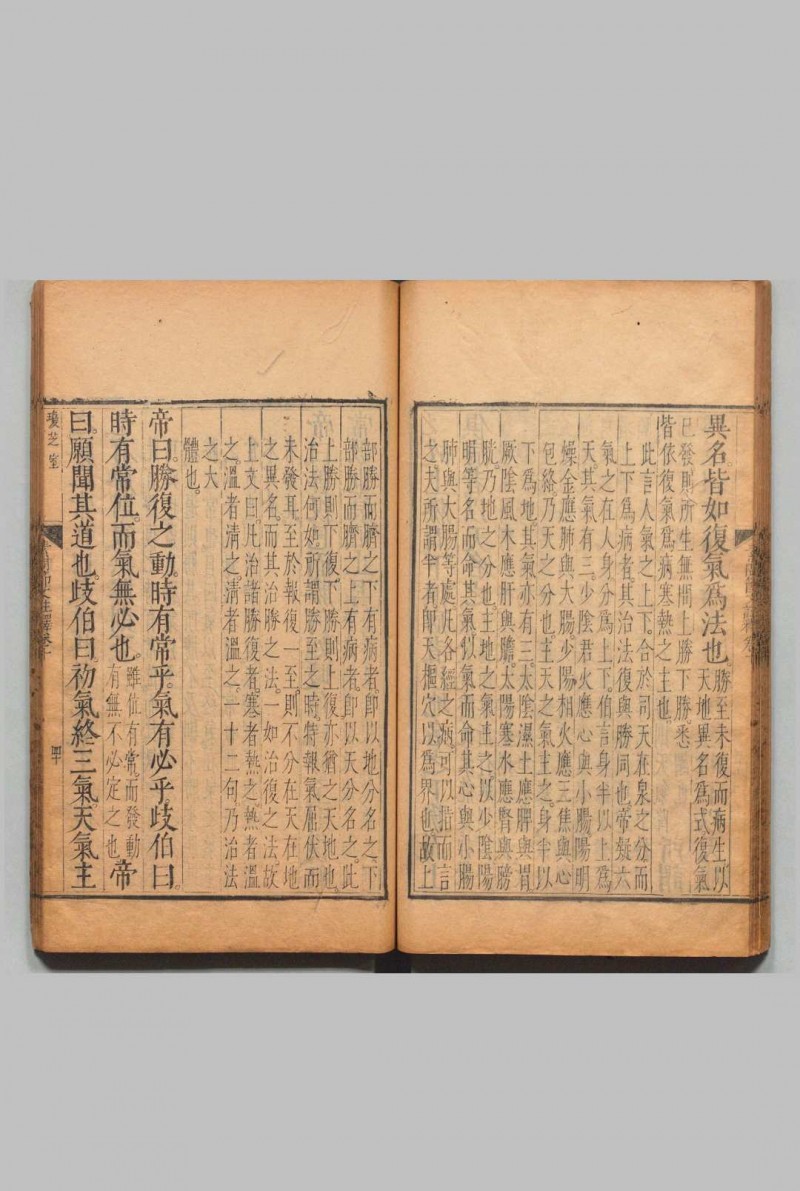 異名皆如復氣爲法也。勝至未復而病生以
天地異名爲式復氣
已發則所生無問上勝下勝。悉
皆依復氣爲病寒熱之主也
此言人氣之上下。合於司天在泉之分而
上下爲病者。其治法復與勝同也。帝疑六
氣之在人身分爲上下。伯言身半以上爲
天其氣有三。少陰君火應心與小腸陽明
燥金應肺與大腸少陽相火應三焦與心
包絡乃天之分也。主天之氣主之。身半以
下爲地。其氣亦有三。太陰濕土應脾與胃
厥陰風木應肝與膽太陽寒水應腎與膀
胱。乃地之分也。主地之氣主之以少陰陽
明等名而命其氣似氣而命其心與小腸
肺與大腸等處。此各經之病。可以指而言
之。夫所謂半者。即天樞穴以爲界也。故上
部勝而臍之下有病者。即以地分名之。下
部勝而臍之上有病者。即以天分名之。此
上勝則下復。下勝則上復亦猶之天地也。
治法何如。所謂勝至之時。特報氣屈伏而
未發耳。至於報復一至。則不分在天在地
之異名。而其治勝之法。一如治復之法。故
上文曰。凡治諸勝復者。寒者熱之熱者溫
之。溫者清之。清者溫之。一十二句乃治法
之大
體也。
帝曰。勝復之動。時有常乎。氣有必乎。歧伯曰。
時有常位而氣無必也。雖位有常。而發動
有無不必定之也帝
曰。願聞其道也。歧伯曰初氣終三氣天氣主
瓊芝室
四十